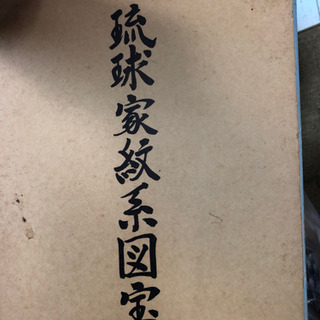 琉球家紋系図宝